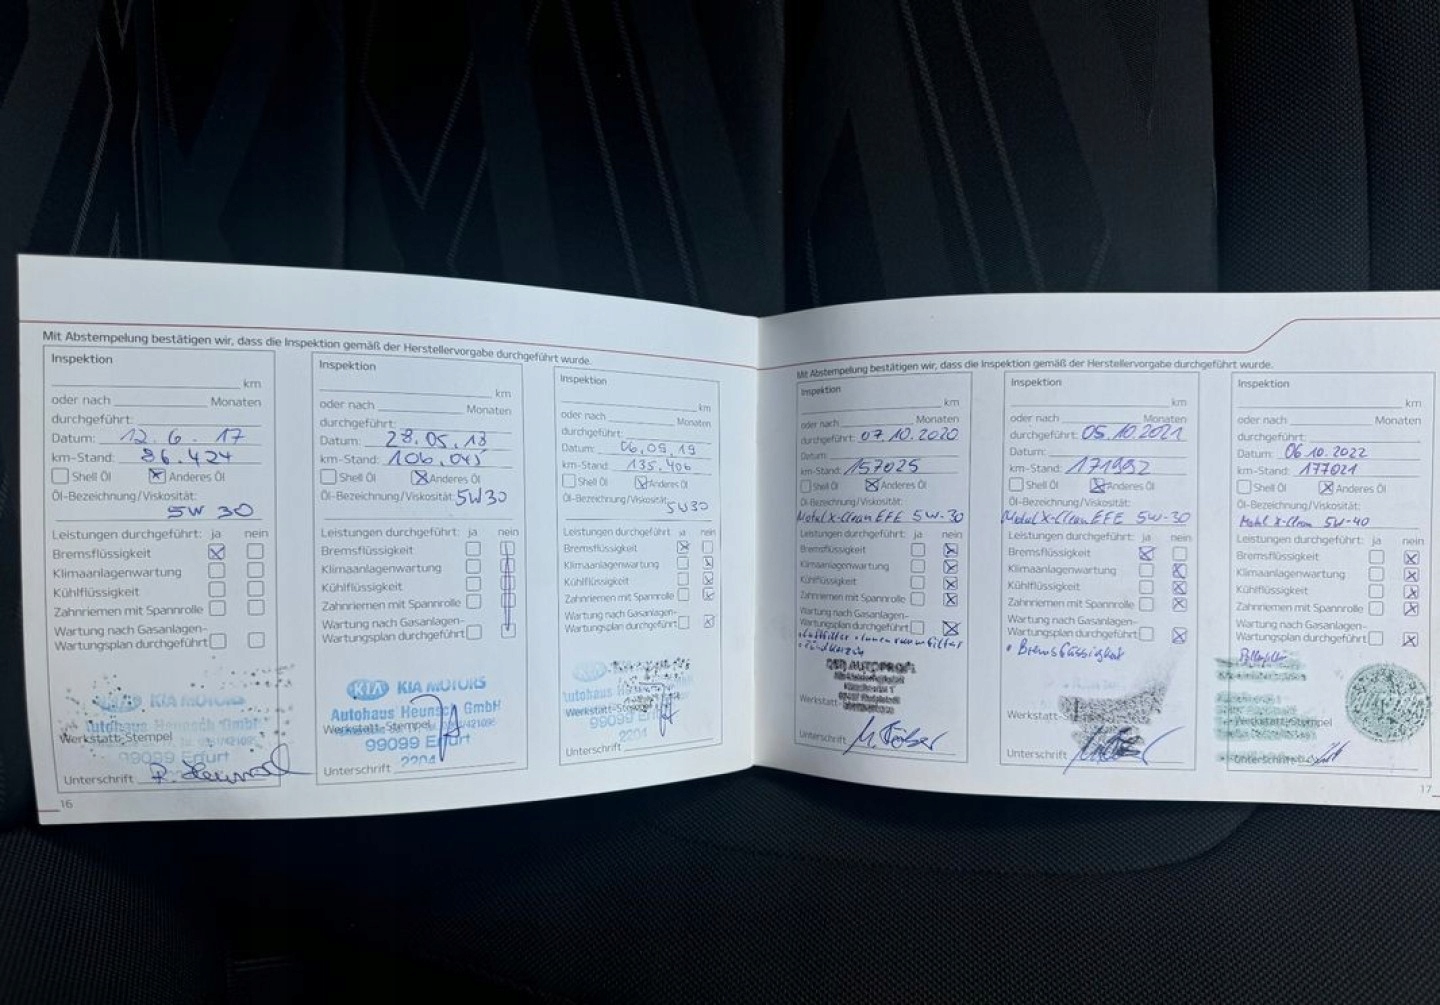 Mit Abstempelung bestätigen wir, dass die Inspektion gemäß der Herstellervorgabe durchgeführt wurde.
Inspektion
km
oder nach Monaten
durchgeführt:
Datum: 12.6.17
km-Stand: 86.424
Shell Öl Anderes Öl
Öl-Bezeichnung/Viskosität:
5W 30
Leistungen durchgeführt: ja nein
Bremsflüssigkeit
Klimaanlagenwartung
Kühlflüssigkeit
Zahnriemen mit Spannrolle
Wartung nach Gasanlagen-
Wartungsplan durchgeführt
KIA MOTORS
Autohaus Heunsch GmbH
Werkstatt-Stempel
99099 Erfurt
Unterschrift
16
Inspektion
km
oder nach Monaten
durchgeführt:
Datum: 28.05.18
km-Stand: 106.045
Shell Öl Anderes Öl
Öl-Bezeichnung/Viskosität: 5W30
Leistungen durchgeführt: ja nein
Bremsflüssigkeit
Klimaanlagenwartung
Kühlflüssigkeit
Zahnriemen mit Spannrolle
Wartung nach Gasanlagen-
Wartungsplan durchgeführt
KIA KIA MOTORS
Autohaus Heunsch GmbH
Werkstatt-Stempel
99099 Erfurt
2204
Unterschrift
Inspektion
km
oder nach Monaten
durchgeführt:
Datum: 06.09.19
km-Stand: 135.406
Shell Öl Anderes Öl
Öl-Bezeichnung/Viskosität:
5W30
Leistungen durchgeführt ja nein
Bremsflüssigkeit
Klimaanlagenwartung
Kühlflüssigkeit
Zahnriemen mit Spannrolle
Wartung nach Gasanlagen-
Wartungsplan durchgeführt
Autohaus
Werkstatt-Stempel
99099 Erfurt
2204
Unterschrift
Mit Abstempelung bestätigen wir, dass die Inspektion gemäß der Herstellervorgabe durchgeführt wurde.
Inspektion
km
oder nach Monaten
durchgeführt: 07.10.2020
Datum:
km-Stand: 157025
Shell Öl Anderes Öl
Öl-Bezeichnung/Viskosität:
Motul X-Clean EFE 5W-30
Leistungen durchgeführt: ja nein
Bremsflüssigkeit
Klimaanlagenwartung
Kühlflüssigkeit
Zahnriemen mit Spannrolle
Wartung nach Gasanlagen-
Wartungsplan durchgeführt
• Luftfilter • Innenraumfilter
• Zündkerzen
AUTOPROFI
Werkstatt-
Unterschrift
Inspektion
km
oder nach Monaten
durchgeführt: 05.10.2021
Datum:
km-Stand: 171992
Shell Öl Anderes Öl
Öl-Bezeichnung/Viskosität:
Motul X-Clean EFE 5W-30
Leistungen durchgeführt: ja nein
Bremsflüssigkeit
Klimaanlagenwartung
Kühlflüssigkeit
Zahnriemen mit Spannrolle
Wartung nach Gasanlagen-
Wartungsplan durchgeführt
• Bremsflüssigkeit
Werkstatt-
Unterschrift
Inspektion
km
oder nach Monaten
durchgeführt:
Datum: 06.10.2022
km-Stand: 177021
Shell Öl Anderes Öl
Öl-Bezeichnung/Viskosität:
Motul X-Clean 5W-40
Leistungen durchgeführt: ja nein
Bremsflüssigkeit
Klimaanlagenwartung
Kühlflüssigkeit
Zahnriemen mit Spannrolle
Wartung nach Gasanlagen-
Wartungsplan durchgeführt
Pollenfilter
Werkstatt-Stempel
Unterschrift
17